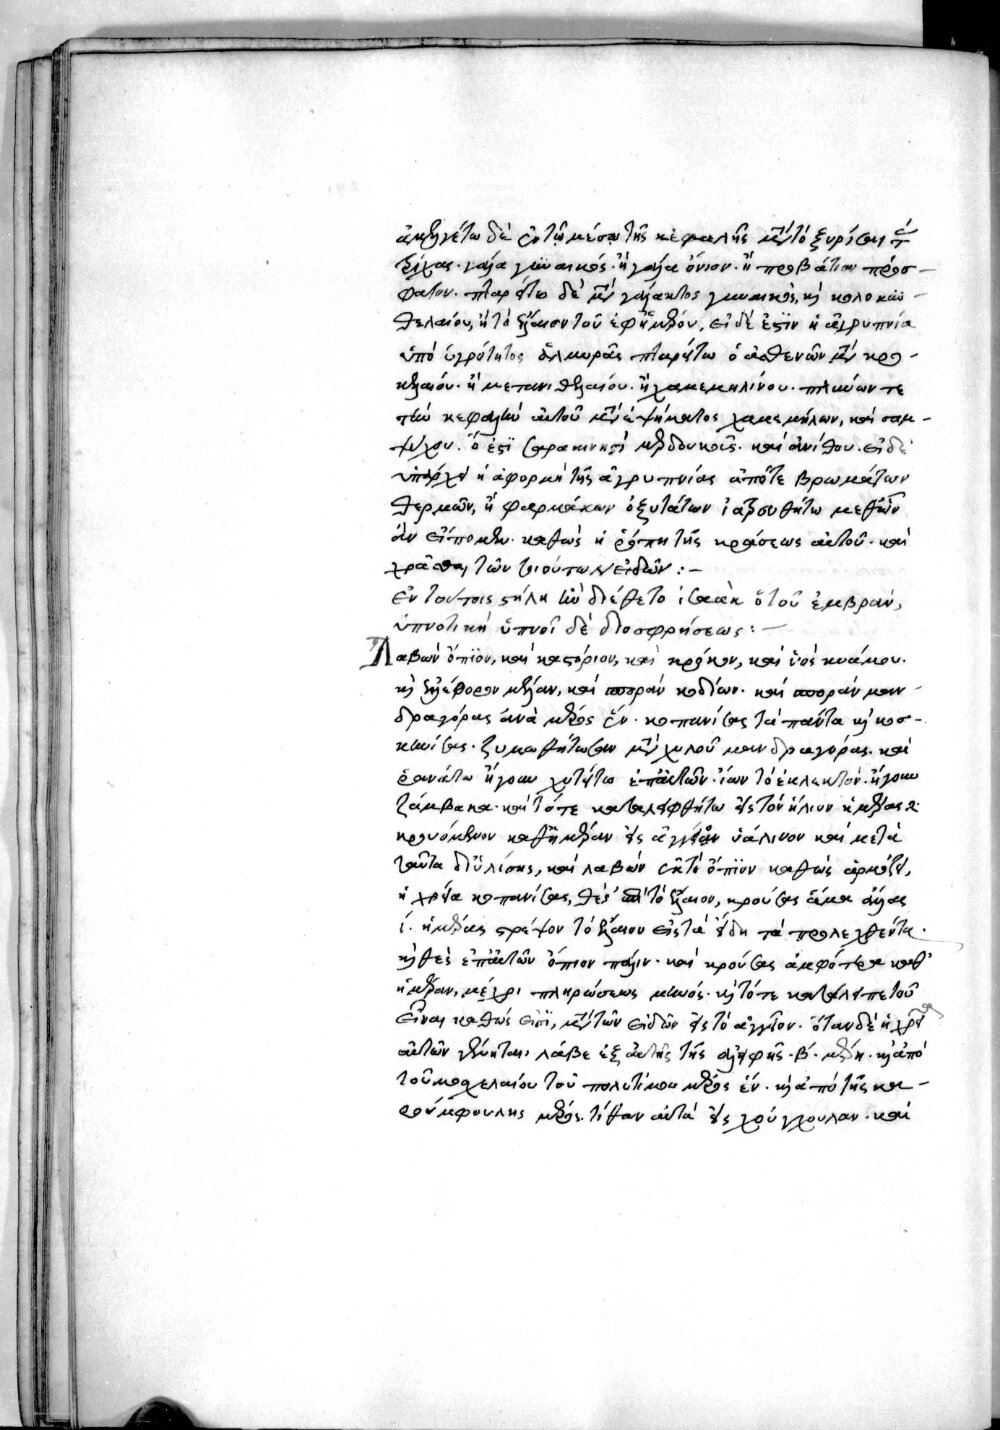 ἀμελγέτω δὲ ἐν τῷ μέσῳ τῆς κεφαλῆς μετὰ τὸ ξυρίσαι τὰς
τρίχας. γάλα γυναικός. ἢ γάλα ὄνιον. ἢ προβάτιον πρόσ-
φατον. πταρέτω δὲ μετὰ γάλακτος γυναικός, καὶ κολοκυν-
θελαίου, ἢ τὸ ἔλαιον τοῦ ἐφήμερον, εἰ δέ ἐστιν ἡ ἀγρυπνία
ὑπὸ ὑγρότητος ἁλμυρᾶς πταρέτω ὁ ἀσθενῶν μετὰ κρο-
κελαίου. ἢ μετὰ ἀνιθελαίου. ἢ χαμεμηλίνου. πλύνων τε
τὴν κεφαλὴν αὐτοῦ μετὰ ἑψήματος χαμεμήλων, καὶ σαμ-
ψύχου. ὅ ἐστι σαρακινιστὶ μερδουκούς. καὶ ἀνίθου. εἰ δὲ
ὑπάρχει ἡ ἀφορμὴ τῆς ἀγρυπνίας ἀπό τε βρωμάτων
θερμῶν, ἢ φαρμάκων ὀξυτάτων ἰατρευθήτω μεθ' ὧν
ἂν εἴπομεν. καθὼς ἡ ῥόπη τῆς κράσεως αὐτοῦ. καὶ
χρᾶσθαι τῶν τοιούτων εἰδῶν :-
ἐν τούτοις στήλη ἣν διέθετο ἰσαὰκ ὁ τοῦ ἐμβράν,
ὑπνοτικὴ ὑπνοῖ δὲ δι' ὀσφρήσεως :-
Λαβὼν ὄπιον, καὶ καστόριον, καὶ κρόκον, καὶ ὑὸς κυάμου.
καὶ ἐλέβορον μέλαν, καὶ σπορὰν κοδίων. καὶ σπορὰν μαν-
δραγόρας ἀνὰ μέρος ἕν. κοπανίσας τὰ πάντα καὶ κοσ-
κινίσας. ζυμωθήτωσαν μετὰ χυλοῦ μανδραγόρας. καὶ
ῥανάτω ἤγουν χυτέτω ἐπ' αὐτῶν. ἴων τὸ ἐκλεκτόν. ἤγουν
ζάμβακα. καὶ τότε καταλειφθήτω εἰς τὸν ἥλιον ἡμέρας
κρουόμενον καθ' ἡμέραν εἰς ἀγγεῖον ὑάλινον καὶ μετὰ
ταῦτα διϋλίσεις, καὶ λαβὼν ἐκ τὸ ὄπιον καθὼς ἁρμόζει,
ἡ χρεία κοπανίσας, θὲς ἐπὶ τὸ ἔλαιον, κρούσας ἅμα ἄλας
ί. ἡμέρας στρέψον τὸ ἔλαιον εἰς τὰ εἴδη τὰ προλεχθέντα.
καὶ θὲς ἐπ' αὐτῶν ὄπιον πάλιν. καὶ κρούσας ἀμφότερα καθ'
ἡμέραν, μέχρι πληρώσεως μηνός. καὶ τότε κατάλειπε τοῦ
εἶναι καθώς εἰσι, μετὰ τῶν εἰδῶν εἰς τὸ ἀγγεῖον. ὅταν δὲ ἡ χρεία
αὐτῶν γένηται, λάβε ἐξ αὐτῆς τῆς ἀλειφῆς .β. μέρη. καὶ ἀπὸ
τοῦ μοσχελαίου τοῦ πολυτίμου μέρος ἕν. καὶ ἀπὸ τῆς κα-
ρούμφουλης μέρος. τίθου αὐτὰ εἰς χούγχουλαν. καὶ